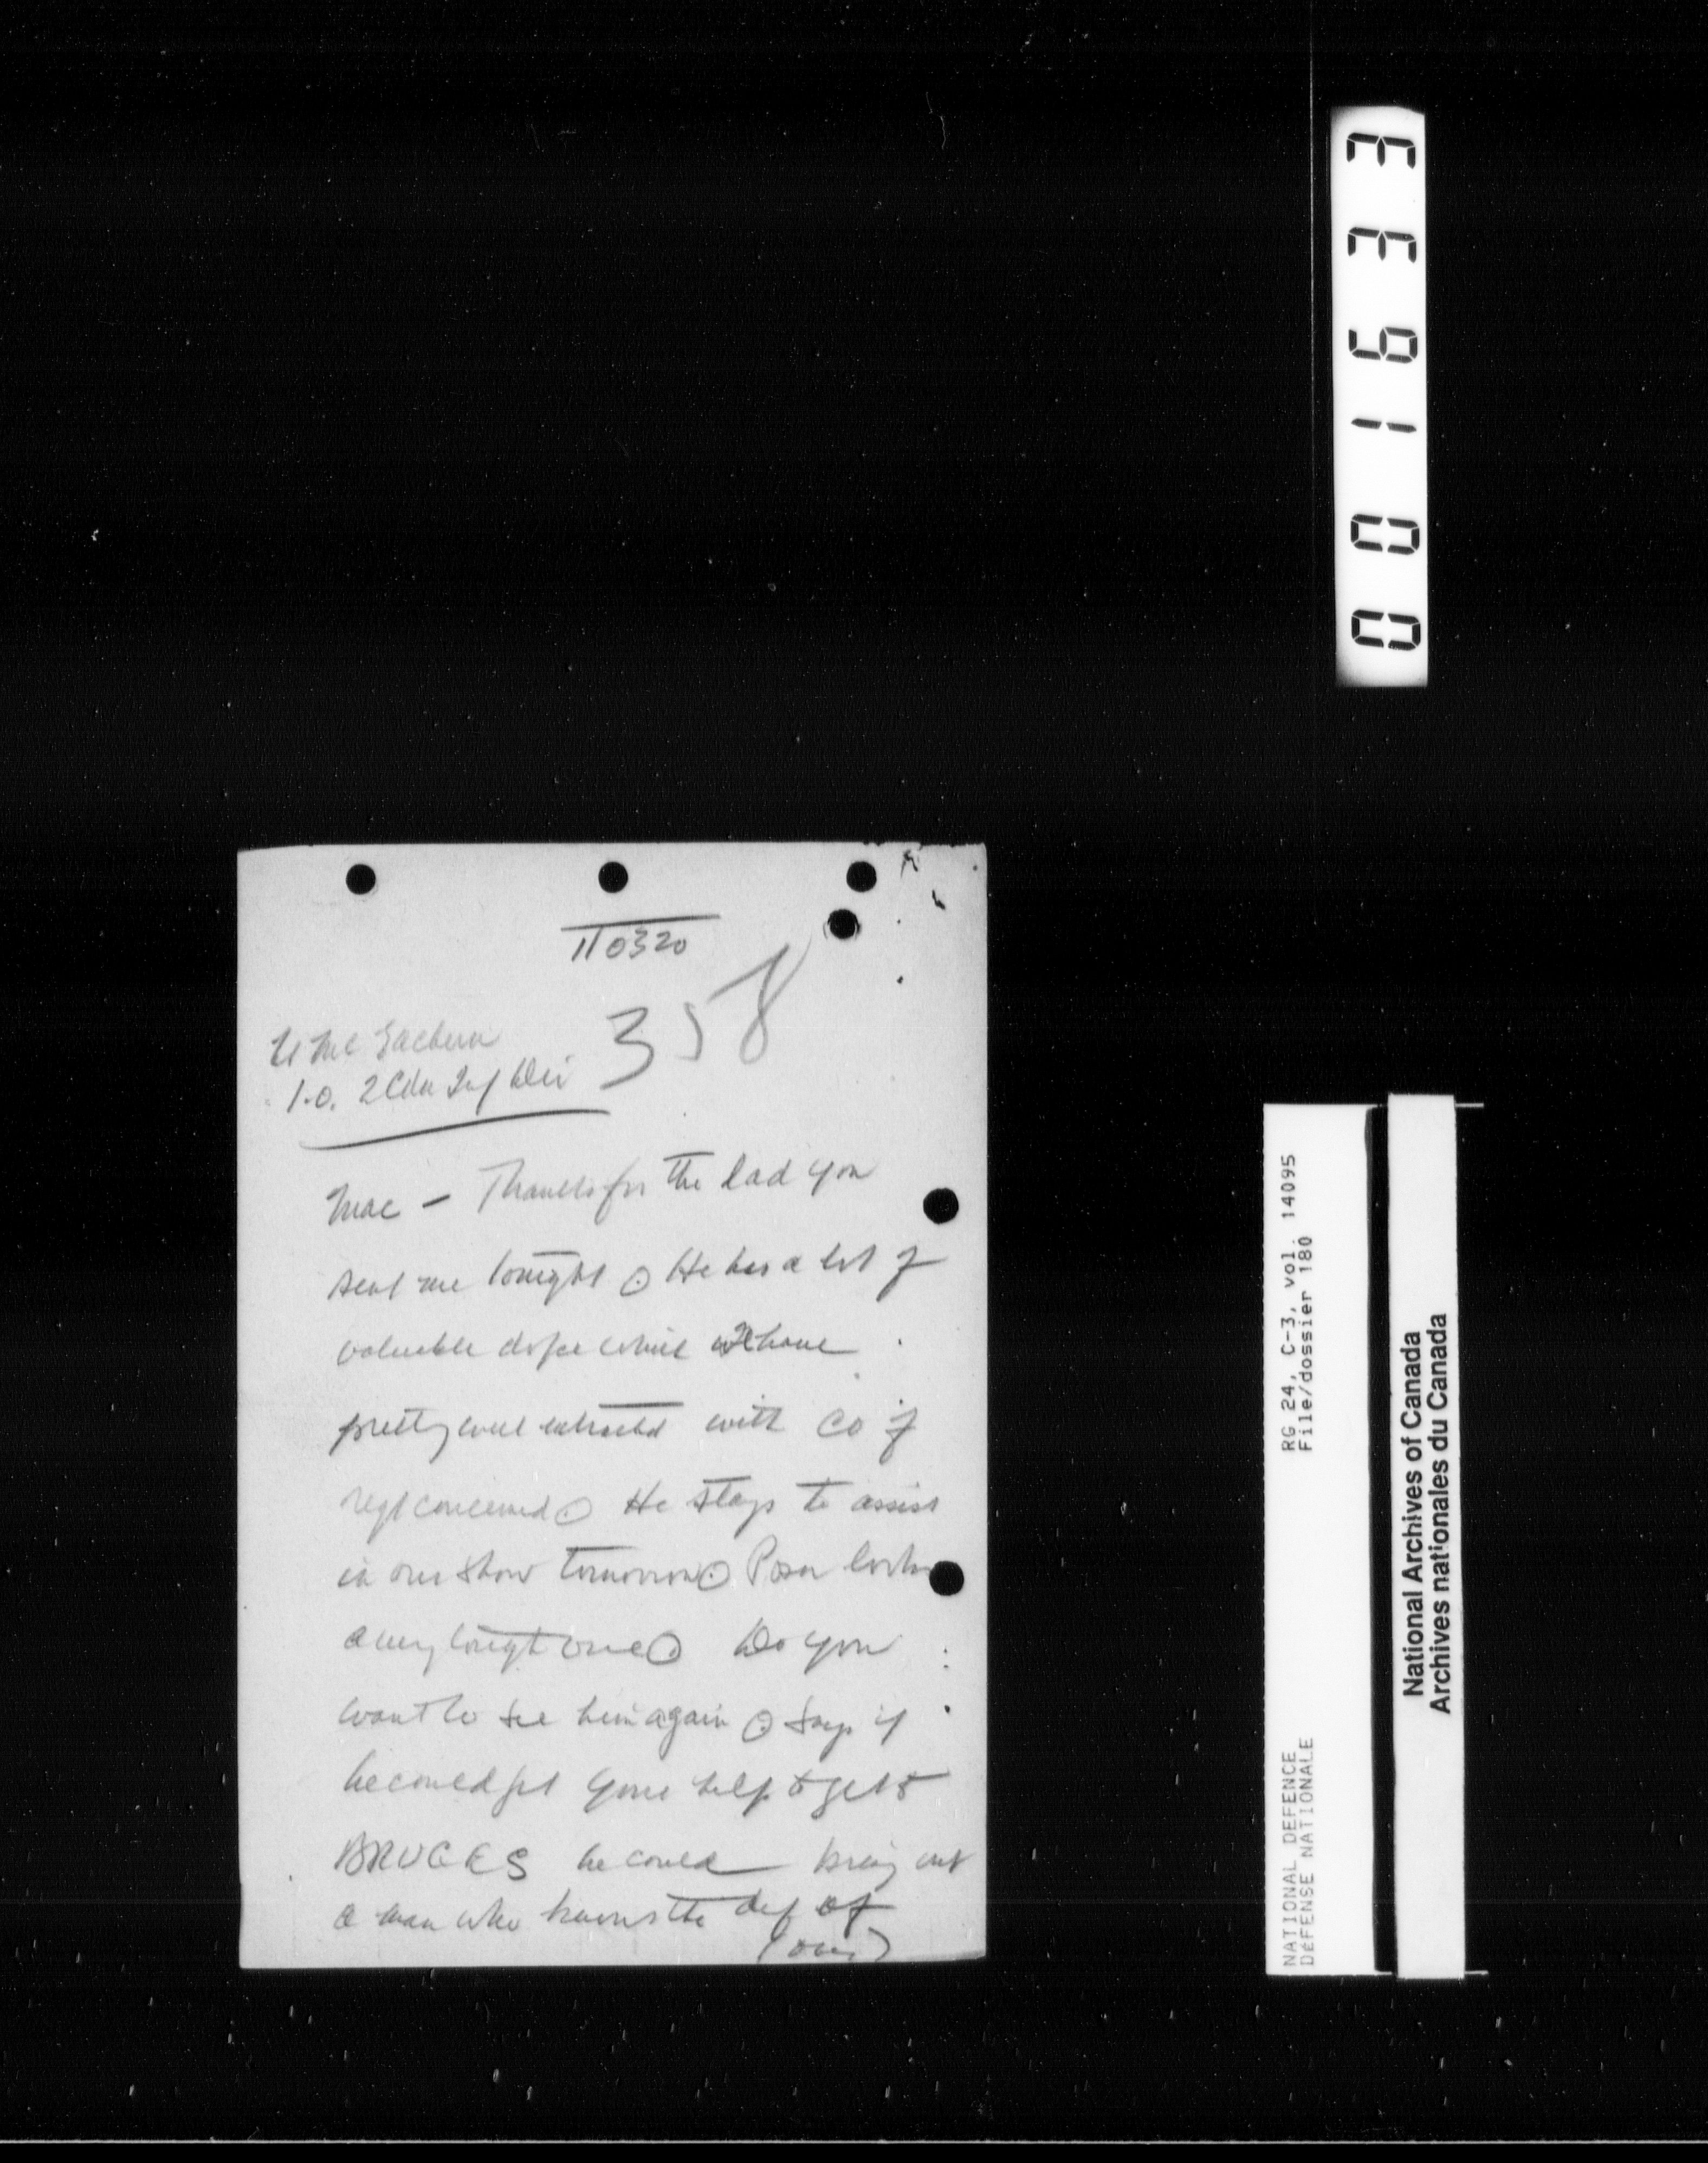 001633
110320
358
Lt McEachern
I.O. 2 Cdn Inf Div
Mac – Thanks for the lad you
sent me tonight ⊙ He has a lot of
valuable dope which we have
pretty well extracted with CO of
regt concerned ⊙ He stays to assist
in our show tomorrow ⊙ Posn looks
a very tough one ⊙ Do you
want to see him again ⊙ Says if
he could get your help to get to
BRUGES he could bring out
a man who knows the def of
(over)
RG 24, C-3, vol. 14095
File/dossier 180
NATIONAL DEFENCE
DÉFENSE NATIONALE
National Archives of Canada
Archives nationales du Canada